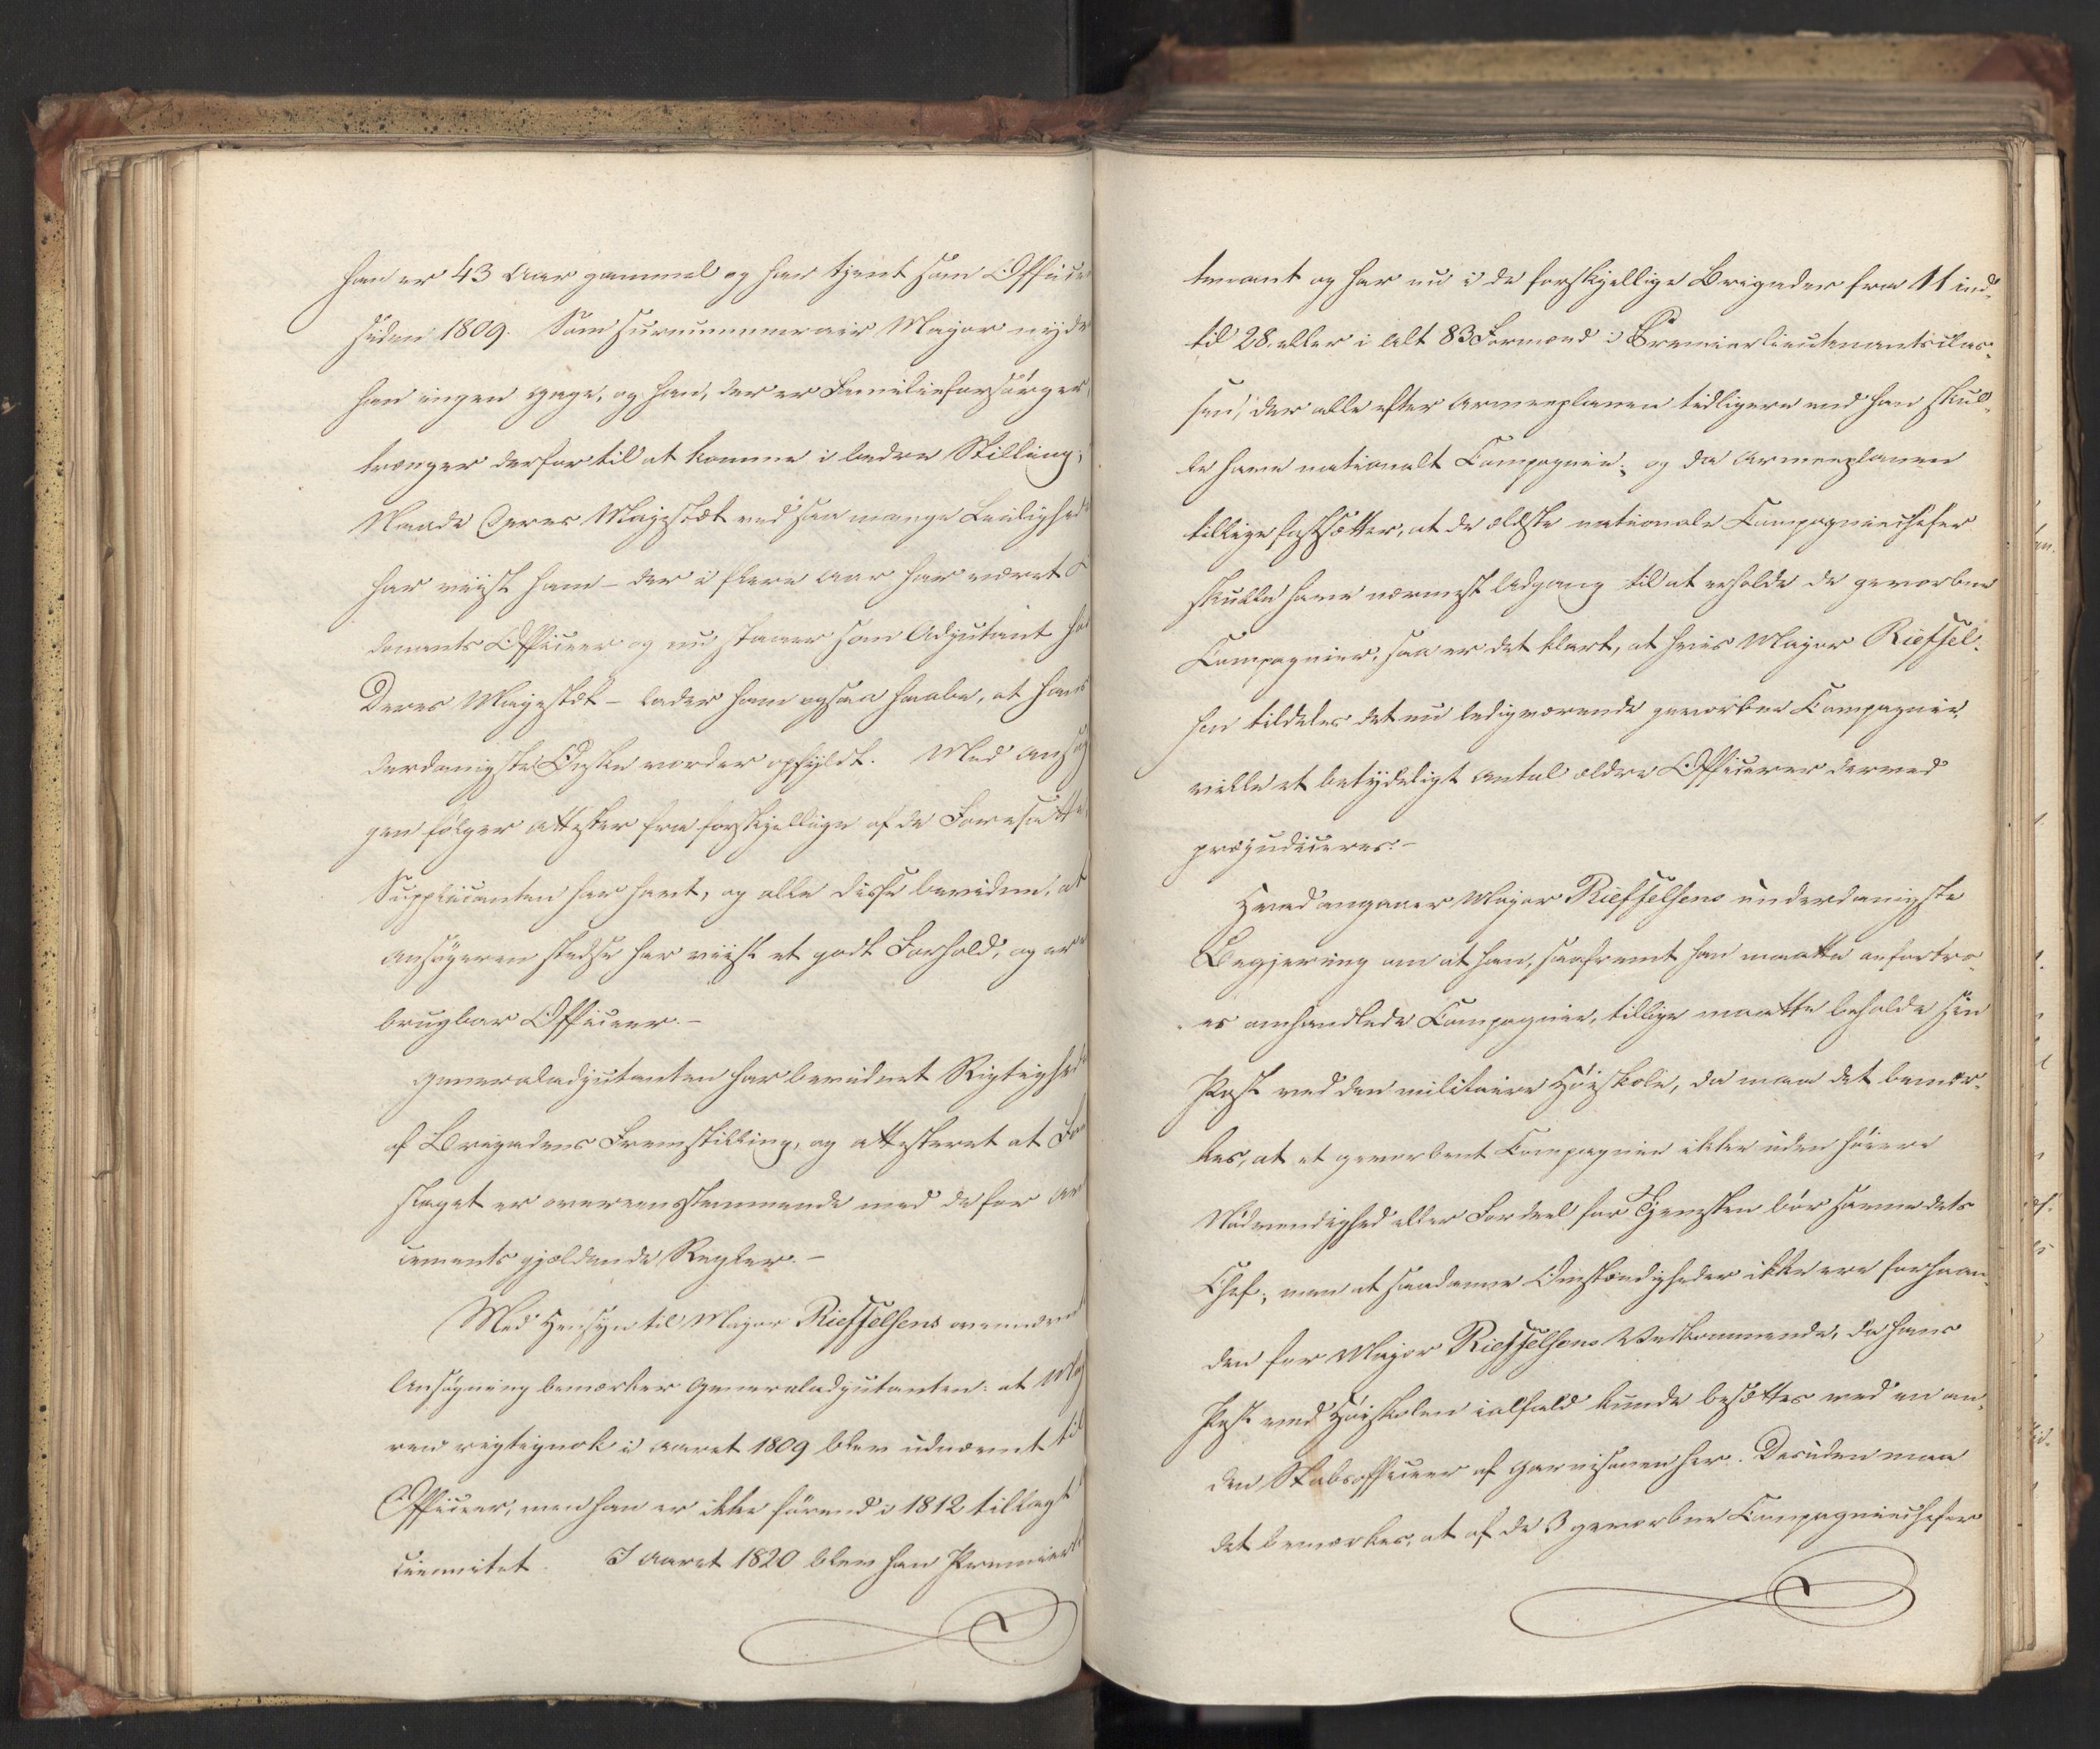 han er 43 Aar gammel og har tjent som Officeer
siden 1809. Som surnummerair Major nyder
han ingen Gage, og han, der er Familieforsørger,
trænger derfor til at komme i bedre Stilling;
Naade Deres Majestæt ved saa mange Leilighede
har viist ham – der i flere Aar har været O
donants Officeer og nu staaer som Adjutant ho
Deres Majestæt – lader ham ogsaa haabe, at hans
derdanigste Ønske vorder opfyldt. Med Ansøg
gen følger Attester fra forskjellige af de Foresatte
Supplicanten har havt, og alle disse bevidne, at
Ansøgeren stedse har viist et godt Forhold, og er
brugbar Officeer. –
Generaladjutanten har bevidnet Rigtighede
af Brigadens Fremstilling, og attesteret at For
slaget er overeensstemmende med de for Av
cements gjældende Regler. –
Med Hensyn til Major Rieffelsens ovennævnt
Ansøgning bemærker Generaladjutanten: at Maj
ren rigtignok i Aaret 1809 blev udnævnt til
Officeer, men han er ikke førend i 1812 tillagt
ciennitet. I Aaret 1820 blev han Premierli
tenant og har nu i de forskjellige Brigader fra 11 ind-
til 28. eller i Alt 83 Formænd i Premierlieutenantsclas-
sen, der alle efter Armeeplanen tidligere end han skul-
le have nationalt Compagnie; og da Armeeplanen
tillige fastsætter, at de ældste nationale Compagniechefer
skulle have nærmest Adgang til at erholde de gevorbne
Compagnier, saa er det klart, at hvis Major Rieffel-
sen tildeles det nu ledigværende gevorbne Compagnie,
vilde et betydeligt Antal ældre Officerer derved
præjudiceres. –
Hvad angaaer Major Rieffelsens underdanigste
Begjering om at han, saafremt han maatte anfortro-
es omhandlede Compagnie, tillige maatte beholde sin
Post ved den militaire Høiskole, da maa det bemær-
kes, at et gevorbent Compagnie ikke uden høiere
Nødvendighed eller Fordeel for Tjenesten bør savne dets
Chef; men at saadanne Omstændigheder ikke ere forhaan-
den for Major Rieffelsens Vedkommende, da hans
Post ved Høiskolen ialfald kunde besættes ved en an-
den Stabsofficeer af Garnisonen her. Desuden maa
det bemærkes, at af de 3 gevorbne Compagniechefer